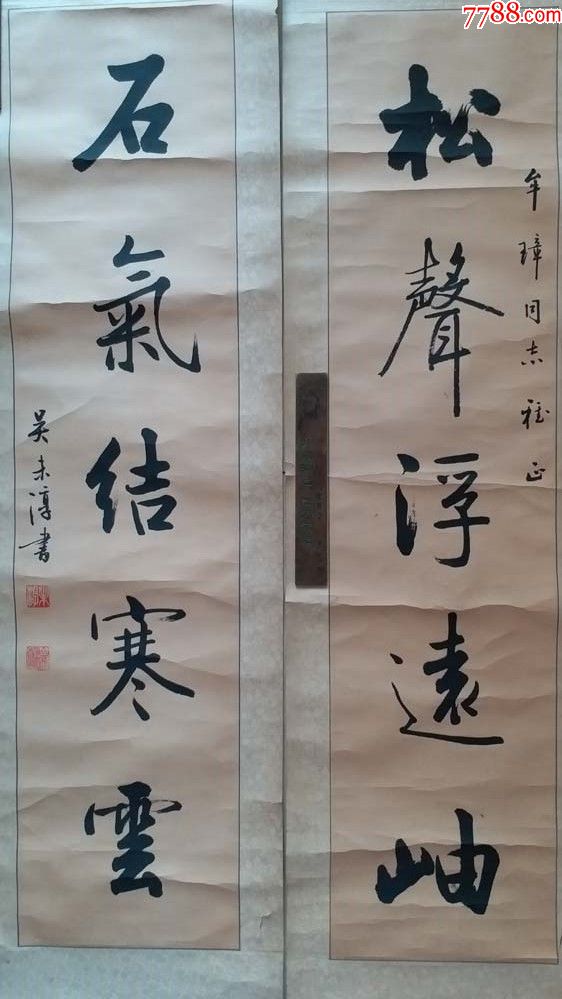 7788.com
松聲浮遠岫
牟璋同志雅正
石氣結寒雲
吴未淳書